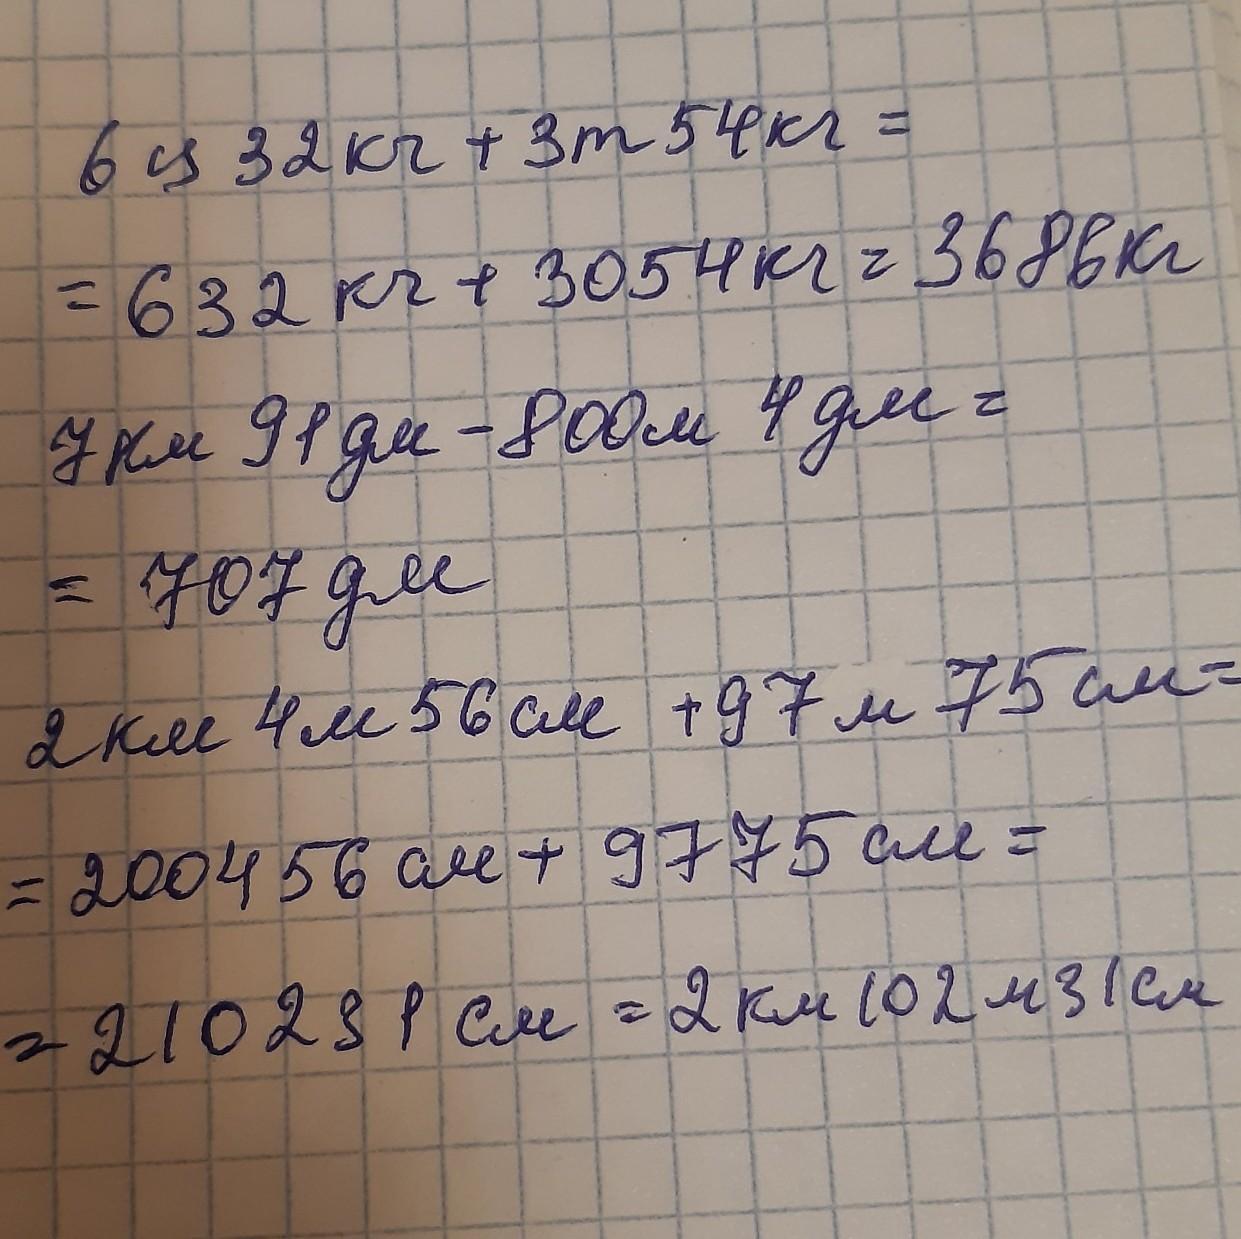 6 ц 32 кг + 3 т 54 кг =
= 632 кг + 3054 кг = 3686 кг
7 км 91 дм - 800 м 4 дм =
= 707 дм
2 км 4 м 56 см + 97 м 75 см =
= 200456 см + 9775 см =
= 210231 см = 2 км 102 м 31 см